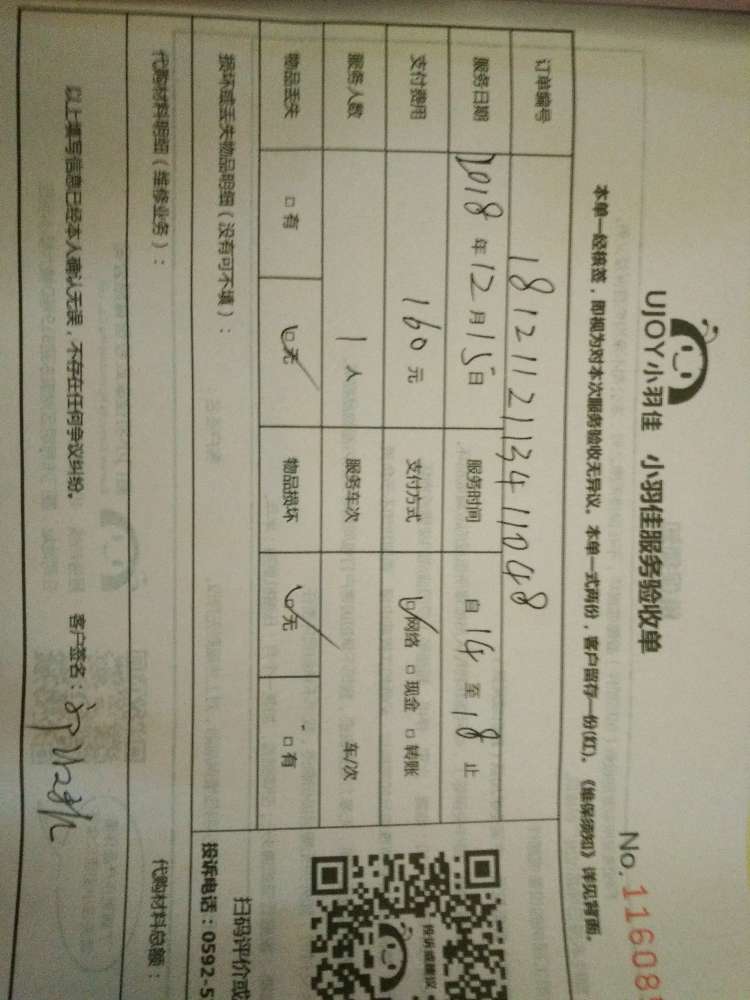 UJOY小羽佳 小羽佳服务验收单 No. 11608
本单一经核签，即视为对本次服务验收无异议。本单一式两份，客户留存一份(红)。《维保须知》详见背面。
订单编号 1812112113411048
服务日期 2018年12月15日 服务时间 自14至18止
支付费用 160元 支付方式 网络 □现金 □转账
服务人数 1人 服务车次 车/次
物品丢失 □有 □无 物品损坏 □无 □有
投诉或建议
扫码评价或
损坏或丢失物品明细（没有可不填）：
投诉电话：0592-5
代购材料明细（维修业务）： 代购材料总额：
以上填写信息已经本人确认无误，不存在任何争议纠纷。 客户签名：